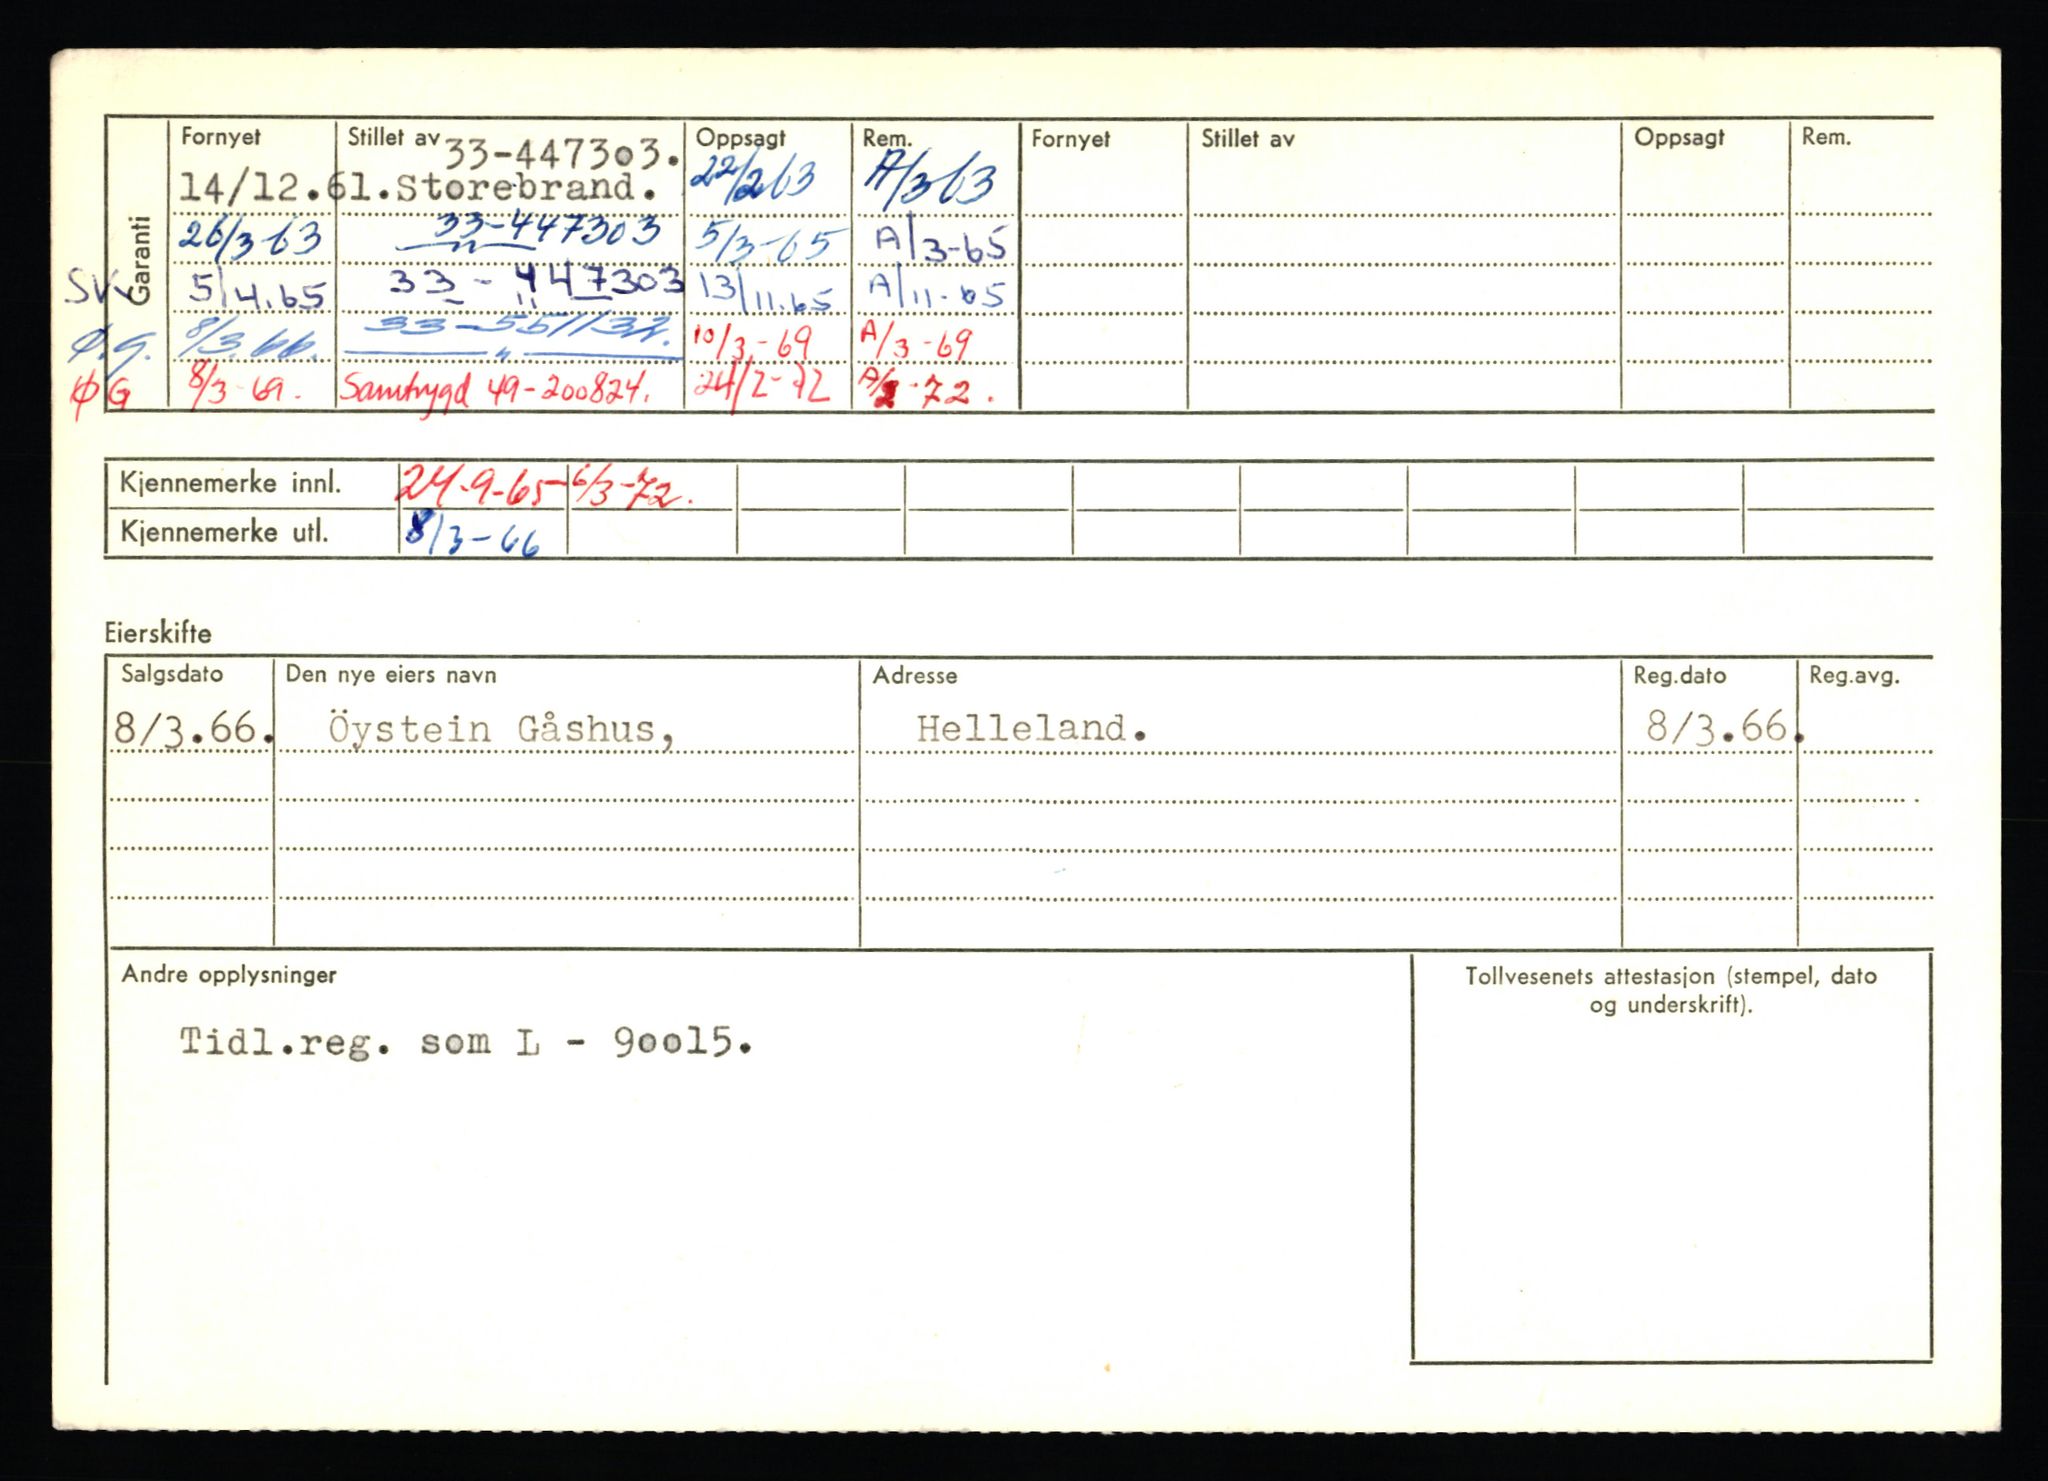 Garanti
Fornyet Stillet av Oppsagt Rem. Fornyet Stillet av Oppsagt Rem.
33-447303.
14/12.61. Storebrand. 22/2 63 A/3 63
26/3-63 33-447303 5/3-65 A/3-65
SVV 5/4.65 33-447303 13/11.65 A/11-65
Ø.G. 8/3.66. 10/3-69 A/3-69
ØG 8/3-69. Samtrygd 49-200824. 24/2-72 A/2-72.
Kjennemerke innl. 24-9-65 6/3-72.
Kjennemerke utl. 8/3-66
Eierskifte
Salgsdato Den nye eiers navn Adresse Reg.dato Reg.avg.
8/3.66. Öystein Gåshus, Helleland. 8/3.66.
Andre opplysninger
Tollvesenets attestasjon (stempel, dato
og underskrift).
Tidl.reg. som L - 90015.